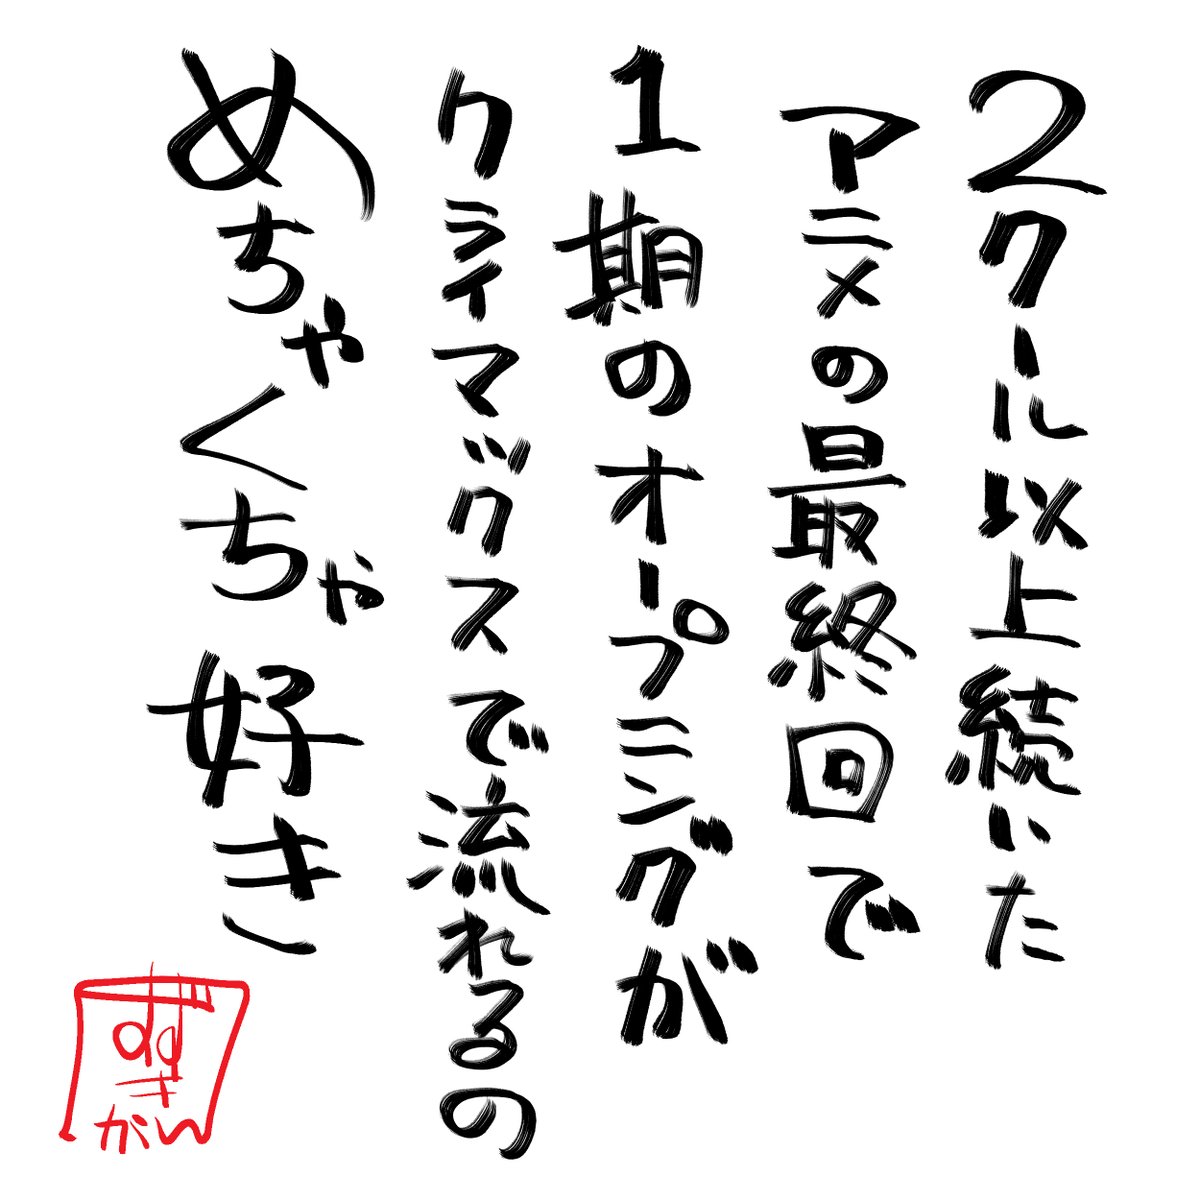 ２クール以上続いた
アニメの最終回で
１期のオープニングが
クライマックスで流れるの
めちゃくちゃ好き
すずき
がん